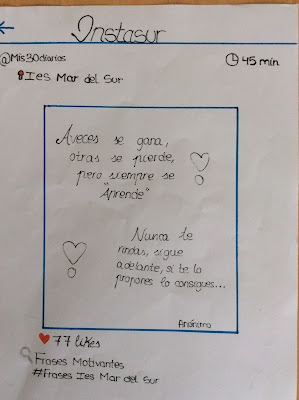 Instasur
@Mis30diarios
45 min
Ies Mar del Sur
Aveces se gana,
otras se pierde,
pero siempre se
"Aprende"
Nunca te
rindas, sigue
adelante, si te lo
propones lo consigues...
Anónimo
77 likes
Frases Motivantes
#Frases Ies Mar del Sur